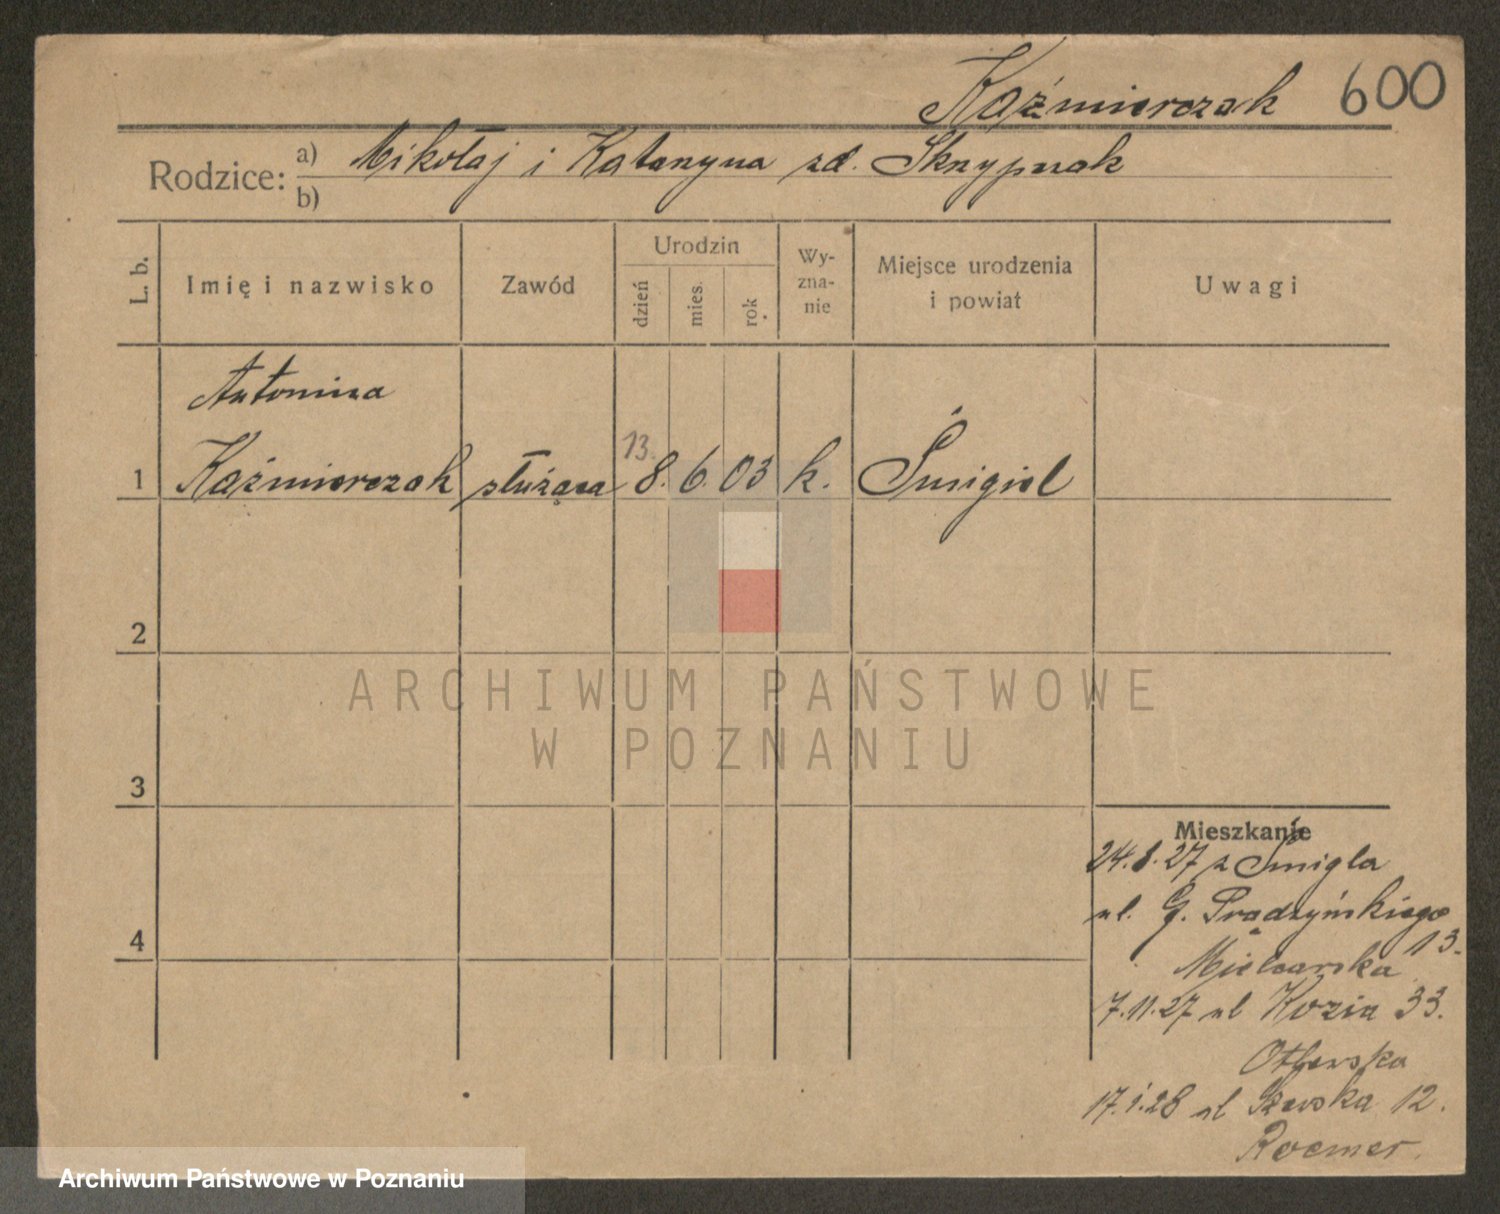 Kaźmierczak 600
Rodzice: a) Mikołaj i Katarzyna zd.
b)
L. b. Imię i nazwisko Zawód Urodzin dzień mies. rok Wy-zna-nie Miejsce urodzenia i powiat Uwagi
Antonina
13.
1 Kaźmierczak służąca 8. 6. 03 k. Śmigiel
2
ARCHIWUM PAŃSTWOWE
W POZNANIU
3
Mieszkanie
24.8.27 z Śmigla
ul. G. Prądzyńskiego
13.
4
Mielcarska
7.11.27 ul Kozia 33.
17.1.28 ul Szewska 12.
Roemer.
Archiwum Państwowe w Poznaniu